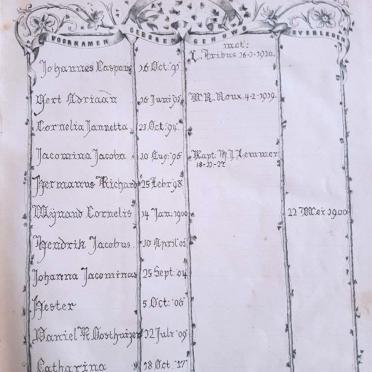 VOORNAMEN GEBOREN GEHUWD OVERLEDEN
met:
Johannes Caspar 16 Oct. 91 L. Fribus 26-2-1920.
Gert Adriaan 16 Juni 93 M.R. Roux. 4-2-1919.
Cornelia Jannetta 23 Oct. 94
Jacomina Jacoba 10 Aug. 96 Kapt. M.J. Lemmer
18-12-22
Hermanus Richard 25 Febr 98
Wynand Cornelis 14 Jan. 1900 22 Mei 1900
Hendrik Jacobus. 10 April 02
Johanna Jacomina 25 Sept. 04
Hester 5 Oct. 06
Daniel R. Oosthuizen 22 Juli 09
Catharina 18 Oct. 17